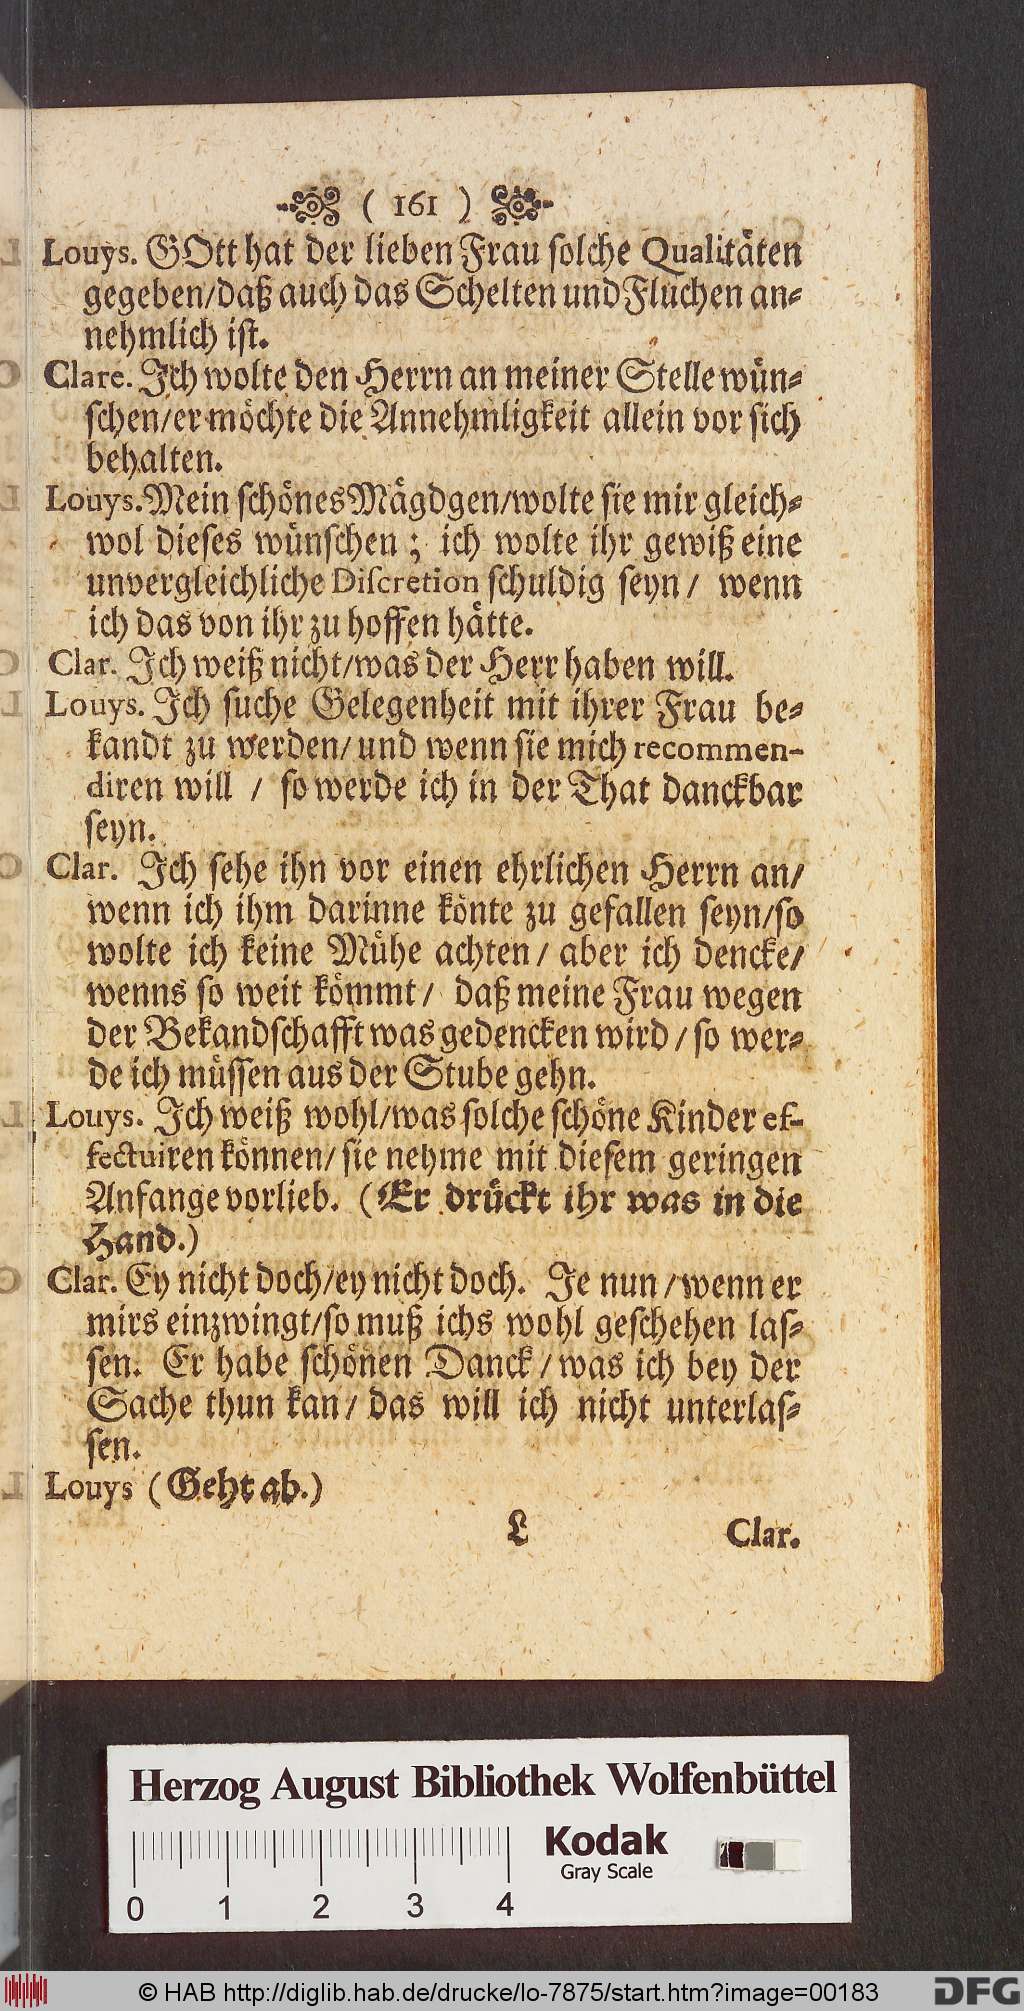 ( 161 )
Louys. GOtt hat der lieben Frau solche Qualitäten
gegeben/daß auch das Schelten und Fluchen an-
nehmlich ist.
Clare. Ich wolte den Herrn an meiner Stelle wün-
schen/er möchte die Annehmligkeit allein vor sich
behalten.
Louys. Mein schönes Mägdgen/wolte sie mir gleich-
wol dieses wünschen; ich wolte ihr gewiß eine
unvergleichliche Discretion schuldig seyn/ wenn
ich das von ihr zu hoffen hätte.
Clar. Ich weiß nicht/was der Herr haben will.
Louys. Ich suche Gelegenheit mit ihrer Frau be-
kandt zu werden/ und wenn sie mich recommen-
diren will / so werde ich in der That danckbar
seyn.
Clar. Ich sehe ihn vor einen ehrlichen Herrn an/
wenn ich ihm darinne könte zu gefallen seyn/so
wolte ich keine Mühe achten/ aber ich dencke/
wenns so weit kömmt/ daß meine Frau wegen
der Bekandschafft was gedencken wird/so wer-
de ich müssen aus der Stube gehn.
Louys. Ich weiß wohl/was solche schöne Kinder ef-
fectuiren können/ sie nehme mit diesem geringen
Anfange vorlieb. (Er drückt ihr was in die
Hand.)
Clar. Ey nicht doch/ey nicht doch. Je nun/wenn er
mirs einzwingt/so muß ichs wohl geschehen las-
sen. Er habe schönen Danck/was ich bey der
Sache thun kan/ das will ich nicht unterlas-
sen.
Louys (Geht ab.)
L Clar.
Herzog August Bibliothek Wolfenbüttel
Kodak
Gray Scale
0 1 2 3 4
© HAB http://diglib.hab.de/drucke/lo-7875/start.htm?image=00183
DFG